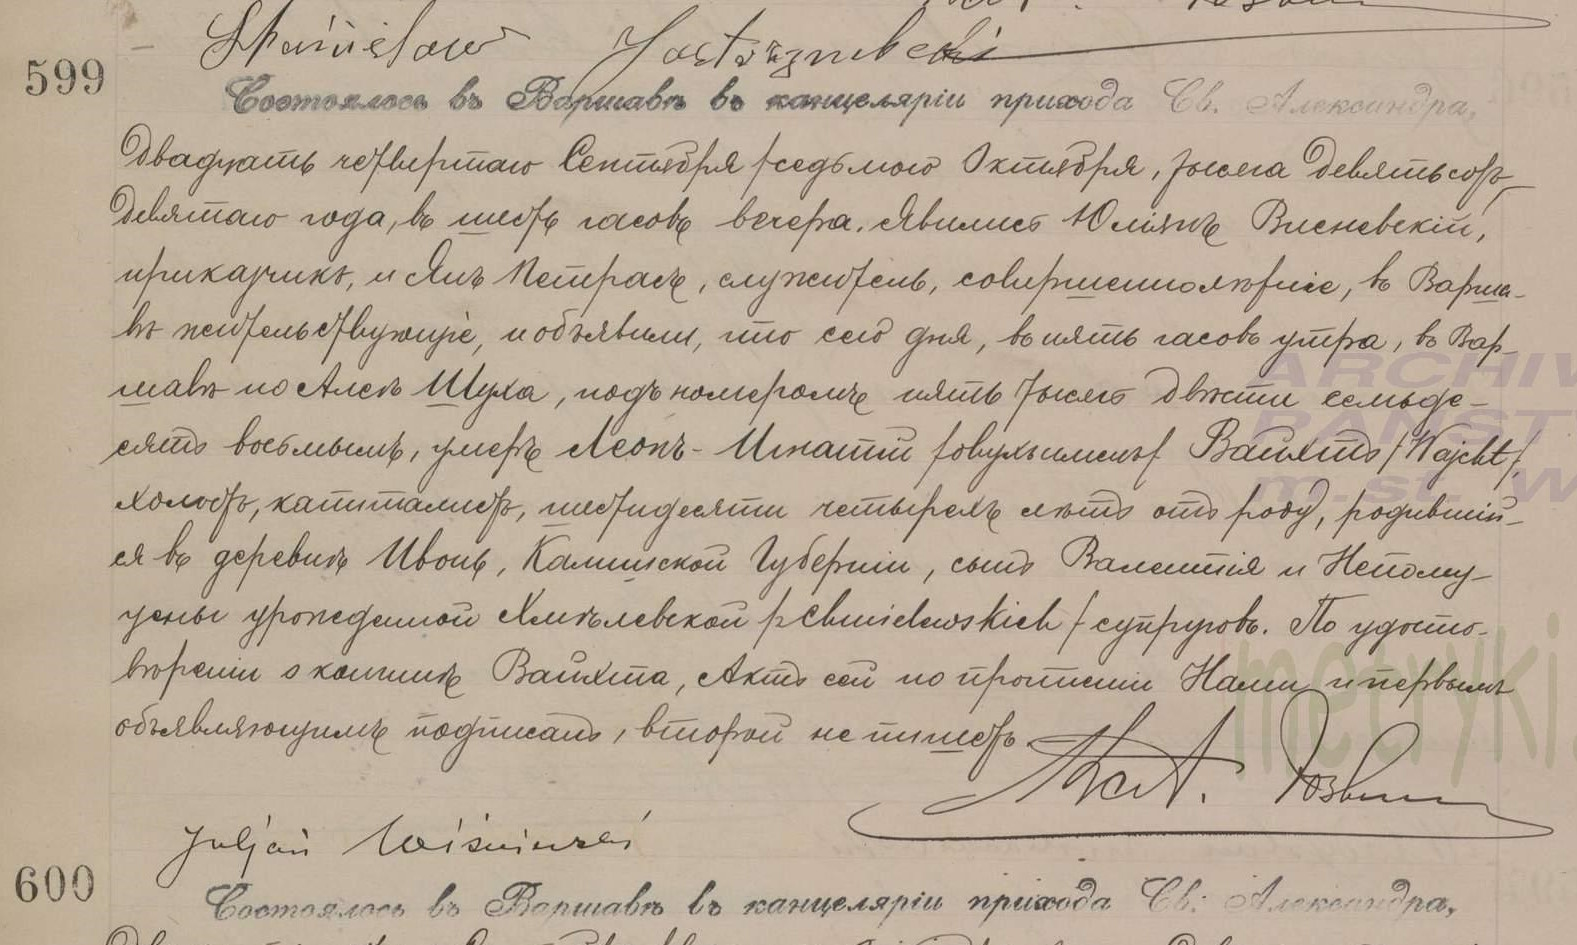 Stanisław Jastrzembski
599
Состоялось въ Варшавѣ въ канцеляріи прихода Св. Александра,
двадцать четвертаго Сентября /седьмого Октября, тысяча девятьсотъ
девятаго года, въ шесть часовъ вечера. Явились Юліянъ Висневскій,
прикащикъ, и Янъ Петрасъ, служитель, совершеннолѣтніе, въ Варша-
вѣ жительствующіе, и объявили, что сего дня, въ пять часовъ утра, въ Вар-
шавѣ по Алеѣ Шуха, подъ номеромъ пять тысячъ двѣсти семьде-
сятъ восьмымъ, умеръ Леонъ-Игнатій /двухъименъ/ Вайхтъ /Wajcht/,
холостъ, капиталистъ, шестидесяти четырехъ лѣтъ отъ роду, родившій-
ся въ деревнѣ Ивонь, Калишской Губерніи, сынъ Валентія и Непому-
цены урожденной Хмѣлевской /z Chmielewskich/ супруговъ. По удосто-
вѣреніи о кончинѣ Вайхта, Актъ сей по прочтеніи Нами и первымъ
объявляющимъ подписанъ, второй не пишетъ.
Julján Wiśniewski
600
Состоялось въ Варшавѣ въ канцеляріи прихода Св. Александра,
ARCHIW
PAŃST
m.st. W
metryki.